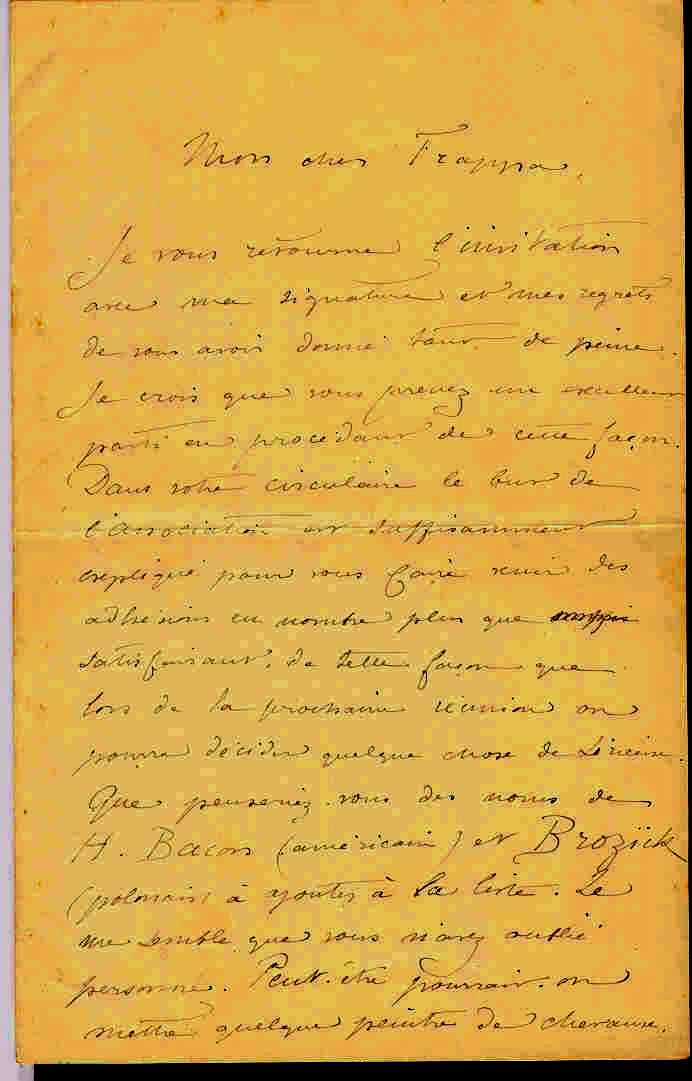 Mon cher Frappa,
Je vous retourne l'invitation
avec ma signature et mes regrets
de vous avoir donné tant de peine.
Je crois que vous prenez un excellent
parti en procédant de cette façon.
Dans votre circulaire le but de
l'association est suffisamment
expliqué pour vous faire venir des
adhésions en nombre plus que
satisfaisant, de telle façon que
lors de la prochaine réunion on
pourra décider quelque chose de sérieux.
Que penseriez-vous des noms de
H. Bacon (américain) et Brozick
(polonais) à ajouter à la liste. Il
me semble que vous n'avez oublié
personne. Peut-être pourrait-on
mettre quelque peintre de chevaux.